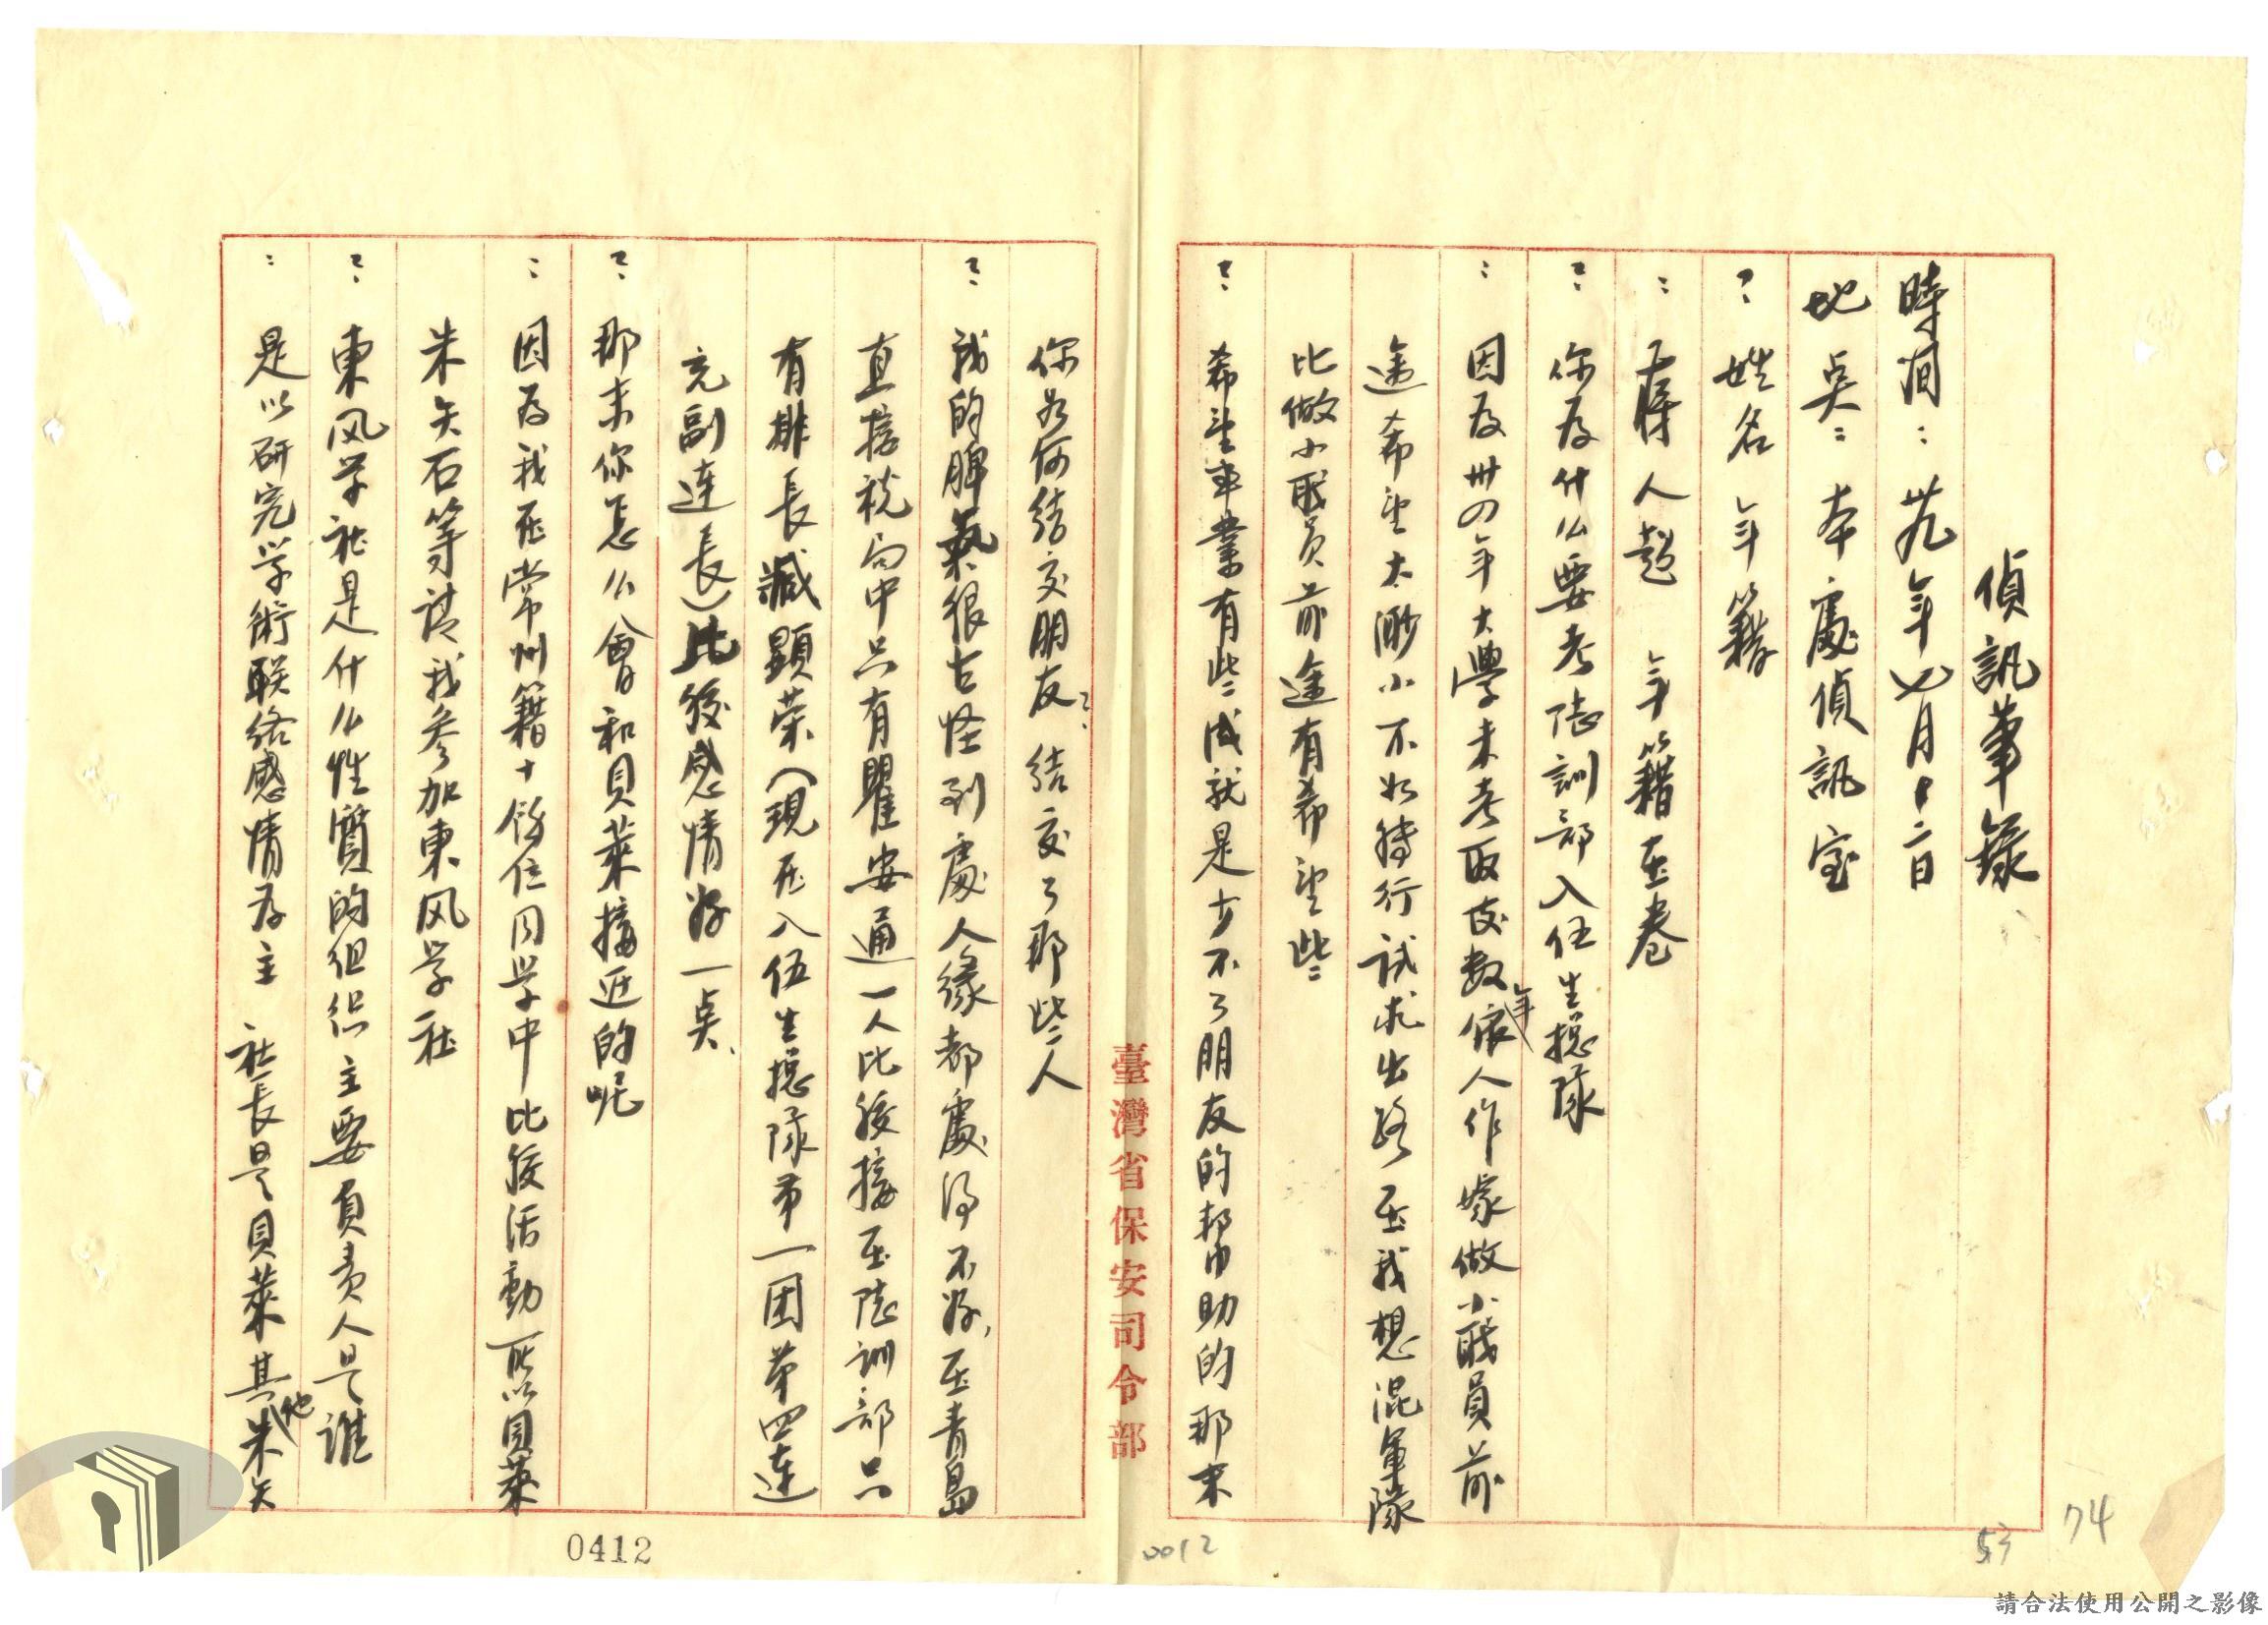 偵訊筆錄
時間：卅九年七月十二日
地點：本處偵訊室
？：姓名年籍
：蔣人趙 年籍在卷
？：你為什么要考陸訓部入伍生總隊
：因為卅四年大學未考取後數年依人作嫁做小職員前
途希望太渺小不如轉行試求出路在我想混軍隊
比做小职員前途有希望些
？：希望事業有些成就是少不了朋友的幫助的那末
你如何結交朋友？結交了那些人
：我的脾氣很古怪到處人緣都處得不好，在青島
直接說句中只有瞿安通一人比較接在陸訓部只
有排長臧顯荣（現在入伍生總隊第一团第四連
充副連長）比較感情好一点、
？：那末你怎么會和貝萊接近的呢
：因為我在常州籍十餘位同学中比較活動所以貝萊
朱矢石等請我參加東风学社
？：東风学社是什么性質的組织主要負责人是誰
：是以研究学術联络感情為主 社長是貝萊其他朱矢
臺灣省保安司令部
0412
0012
53
74
請合法使用公開之影像